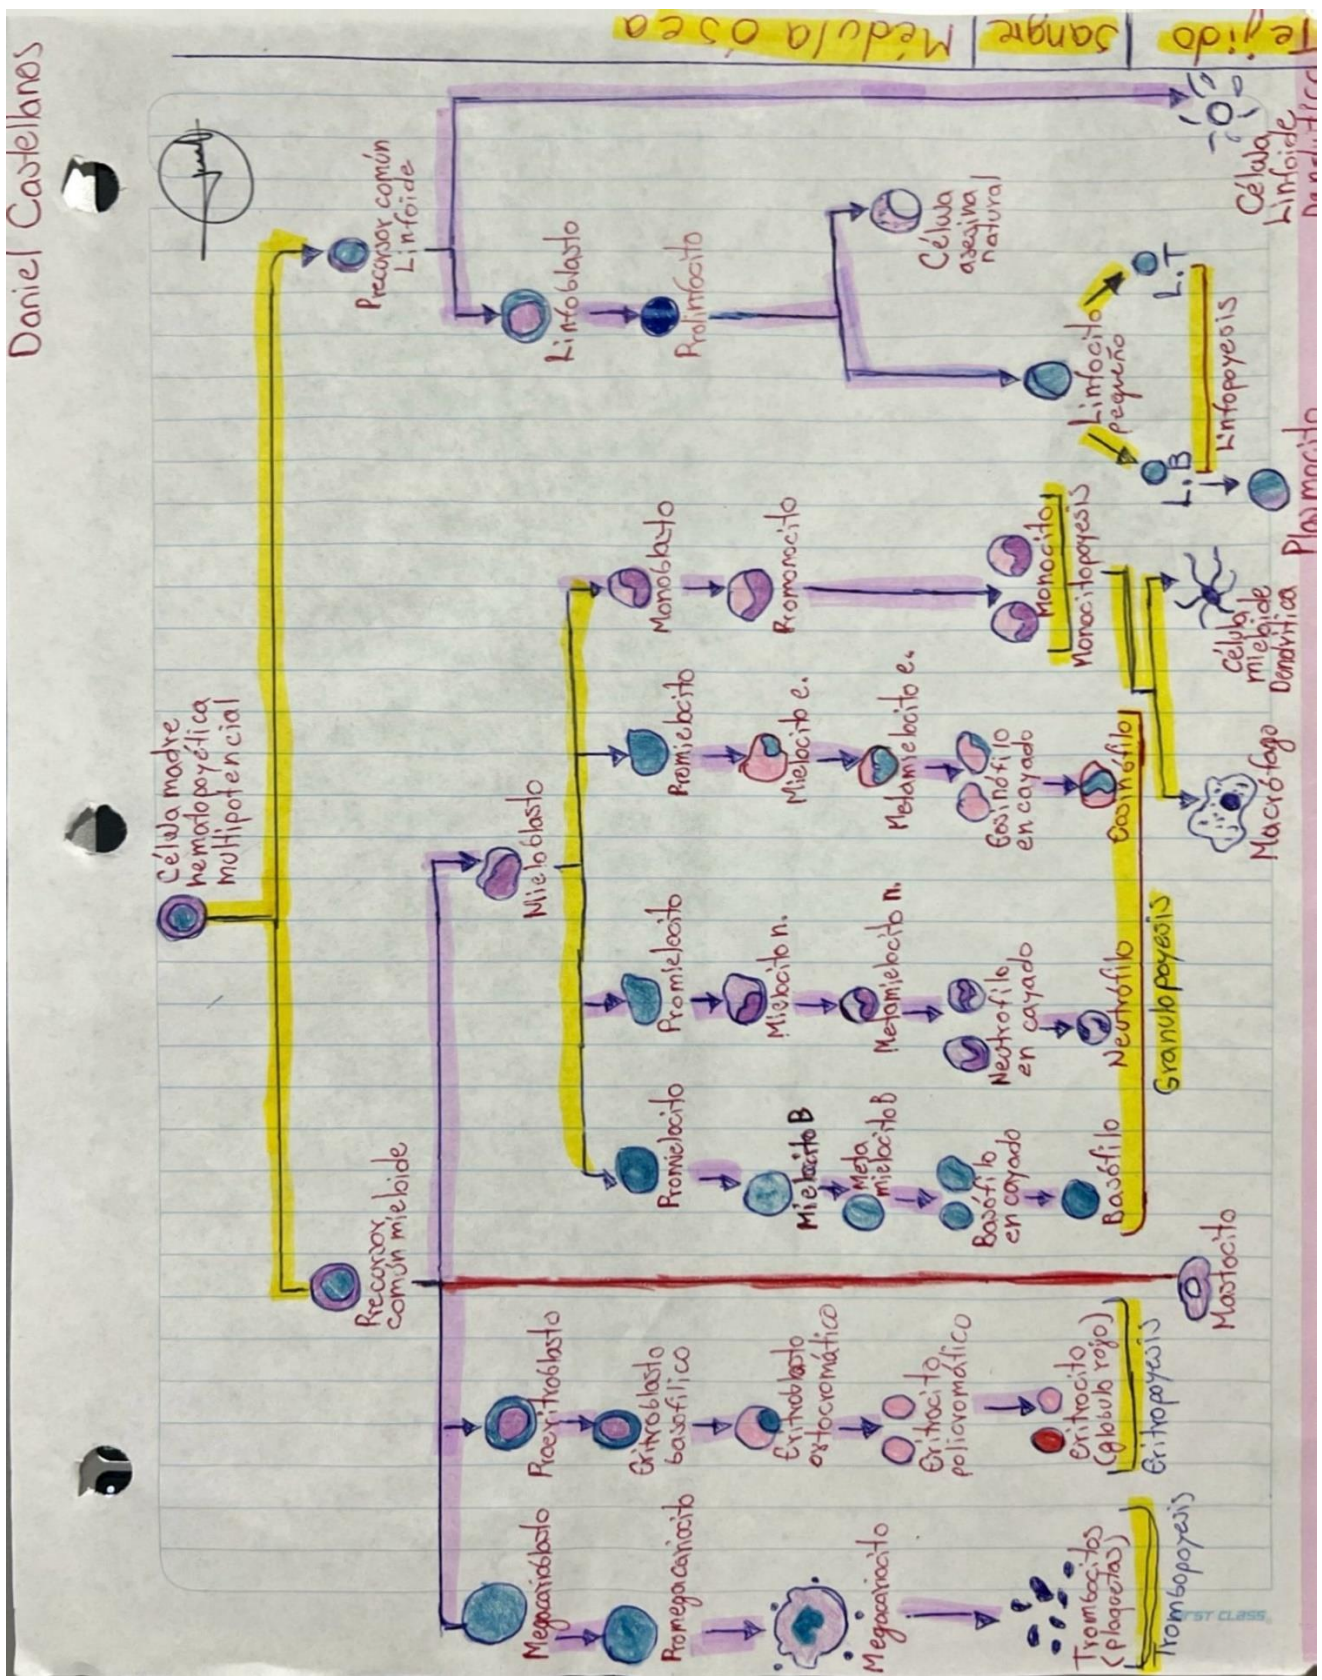 Daniel Castellanos
Célula madre
hematopoyética
multipotencial
Precursor
común mieloide
Precursor común
Linfoide
Médula ósea
Sangre
Tejido
Megacarioblasto
Promegacariocito
Megacariocito
Trombocitos
(plaquetas)
Trombopoyesis
Proeritroblasto
Eritroblasto
basofílico
Eritroblasto
ortocromático
Eritrocito
policromático
Eritrocito
(glóbulo rojo)
Eritropoyesis
Mastocito
Mieloblasto
Promielocito
Mielocito B
Meta
mielocito B
Basófilo
en cayado
Basófilo
Promielocito
Mielocito n.
Metamielocito n.
Neutrofilo
en cayado
Neutrófilo
Granulopoyesis
Promielocito
Mielocito e.
Metamielocito e.
Eosinófilo
en cayado
Eosinófilo
Monoblasto
Promonocito
Monocito
Monocitopoyesis
Macrófago
Célula
mieloide
Dendrítica
Linfoblasto
Prolinfocito
Linfocito
pequeño
L.B
L.T
Linfopoyesis
Plasmocito
Célula
asesina
natural
Célula
Linfoide
Dendrítica
FIRST CLASS